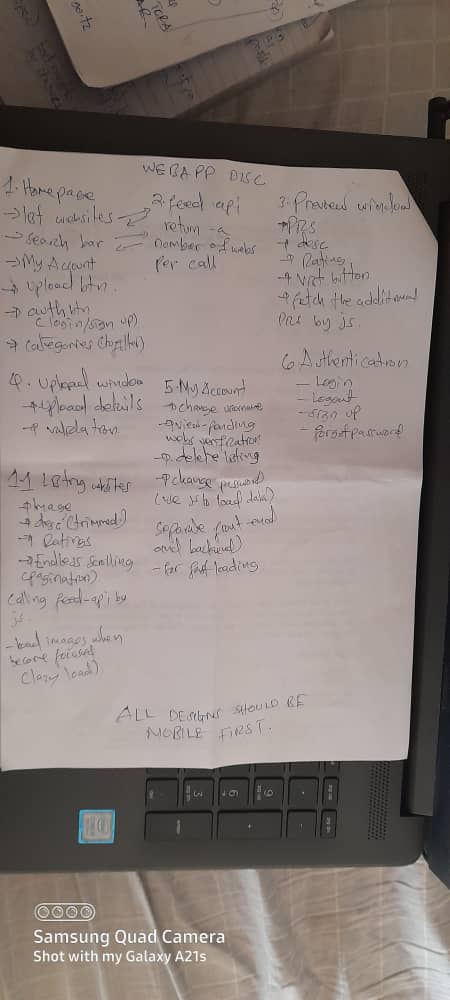 WEBAPP DISC
1. Homepage
→ list websites
→ search bar
→ My Account
→ upload btn.
→ auth btn
(login/sign up)
→ categories (to filter)
2. feed api
return a
number of webs
per call
3. Preview window
→ PRS
→ desc
→ Rating
→ Visit button
→ fetch the additional
PRS by js.
4. Upload window
→ upload details
→ validation
5. My Account
→ change username
→ view pending
webs verification
→ delete listing
→ change password
(use js to load data)
separate front-end
and backend)
- for fast loading
6. Authentication
- Login
- Logout
- sign up
- forgot password
1.1 Listing websites
→ Image
→ desc (trimmed)
→ Ratings
→ Endless scrolling
(pagination)
calling feed-api by
js.
- load images when
become focused
(lazy load)
ALL DESIGNS SHOULD BE
MOBILE FIRST.
Samsung Quad Camera
Shot with my Galaxy A21s